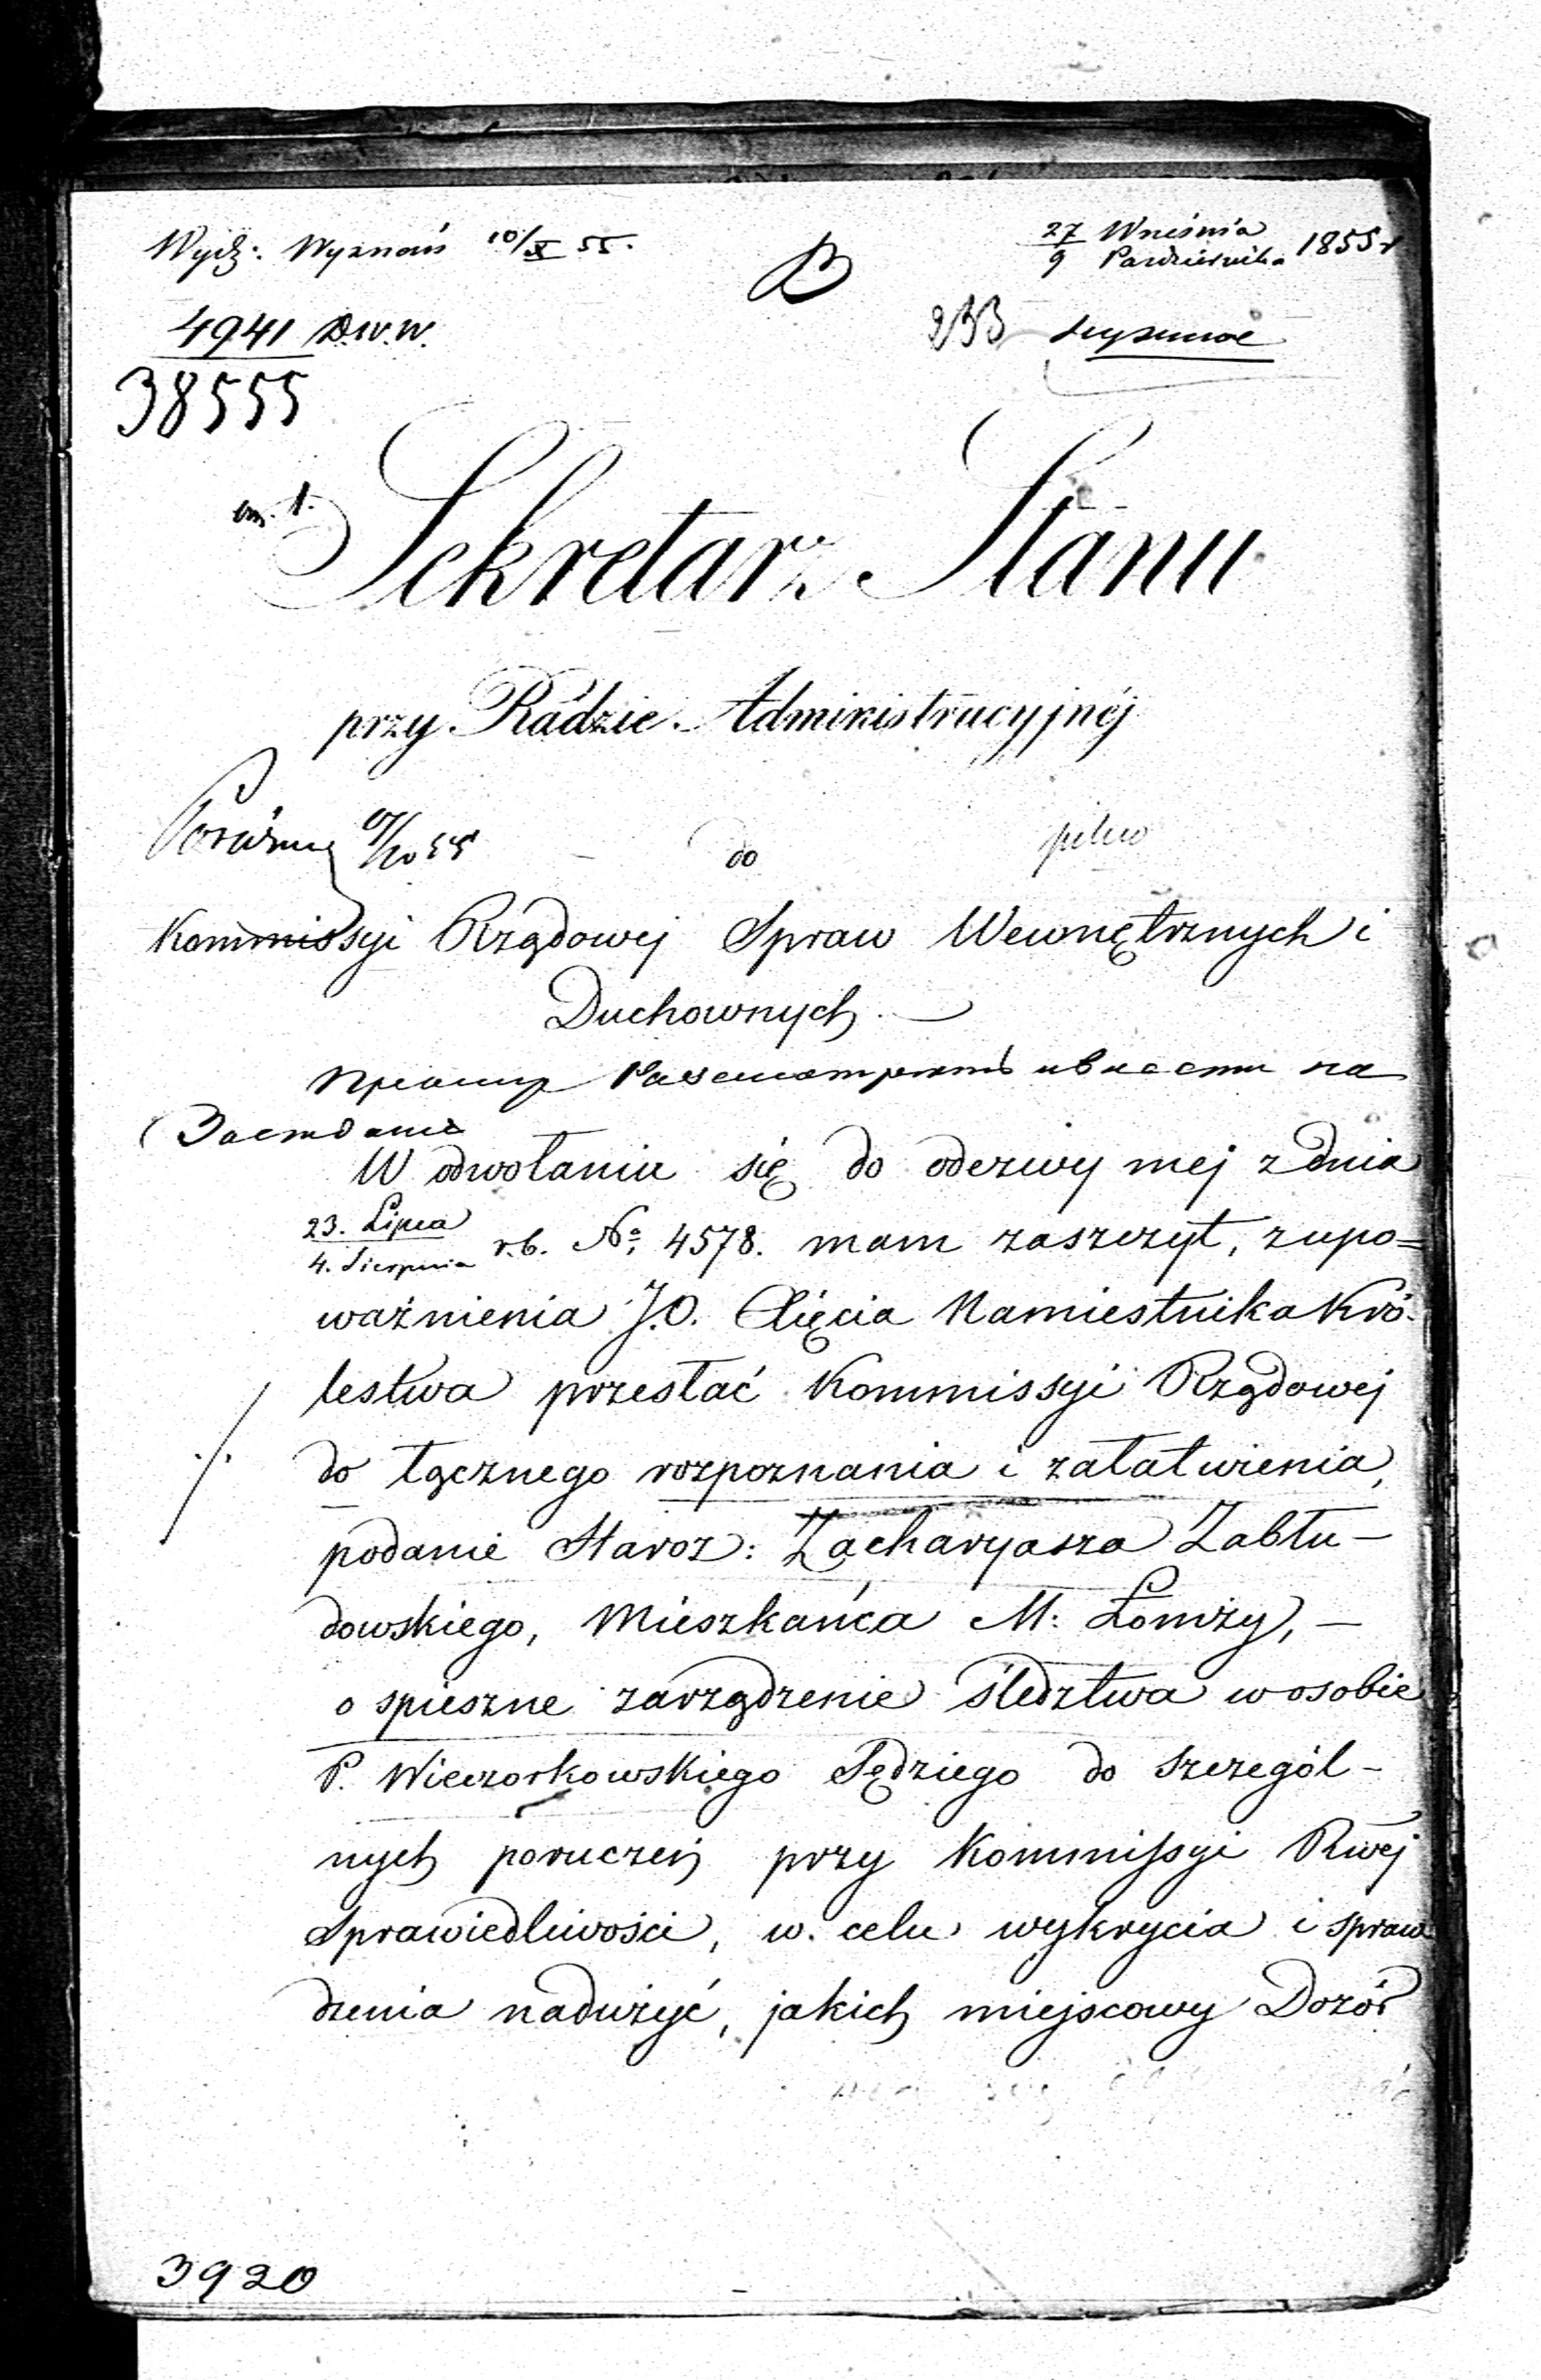 Wydz: Wyznań 10/X 55.
27 Wrześnía
9 Pazdziernika 1855 r
4941 D.W.W.
233
38555
Sekretarz Stanu
przy Radzie Administracyjnéj
pilno
do
Kommissyi Rządowej Spraw Wewnętrznych i
Duchownych.
Прошу Разсмотреть и внести на
Заседание
W odwołaniu się do odezwy mej z dnia
23. Lipca
4. Sierpnia r.b. No. 4578. mam zaszczyt, z upo=
ważnienia J.O. Xięcia Namiestnika Kró-
lestwa przesłać Kommissyi Rządowej
do łącznego rozpoznania i załatwienia,
podanie Staroz: Zacharyasza Zabłu-
dowskiego, Mieszkańca M: Łomży, -
o spieszne zarządzenie śledztwa w osobie
P. Wieczorkowskiego Sędziego do szczegól-
nych poruczeń przy Kommissyi Rwej
Sprawiedliwości, w celu wykrycia i spraw
dzenia nadużyć, jakich miejscowy Dozór
3920